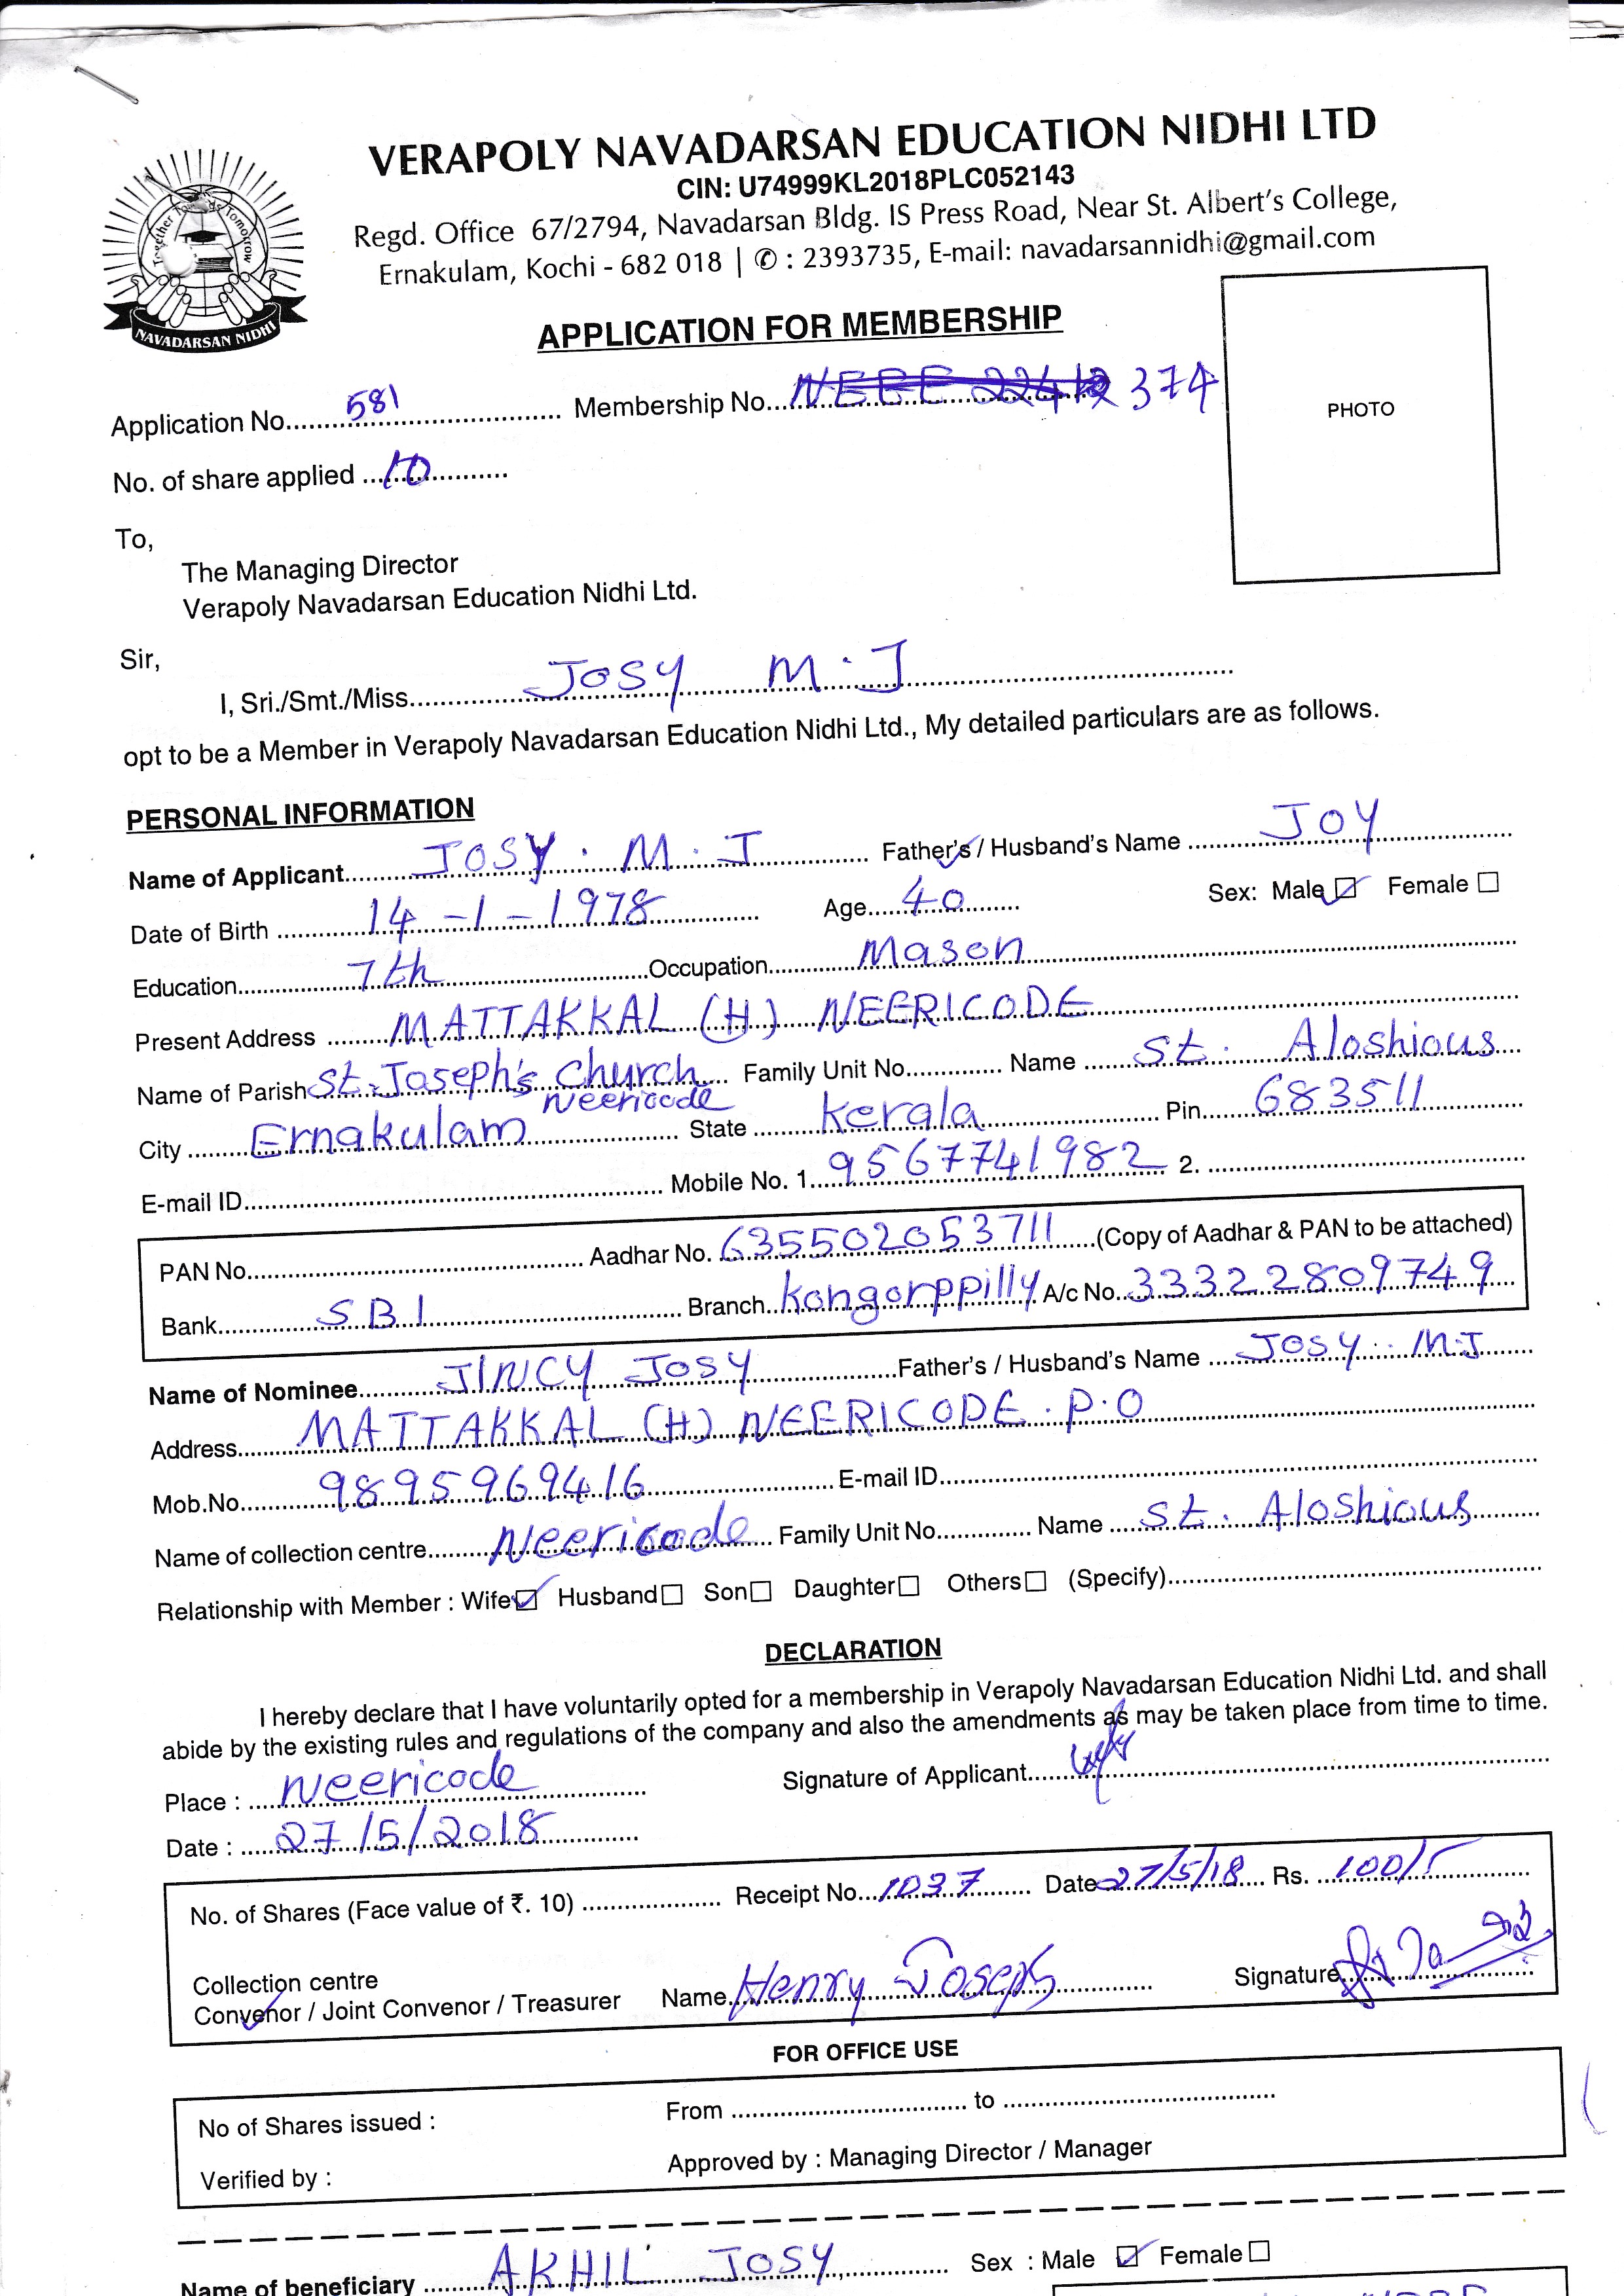 VERAPOLY NAVADARSAN EDUCATION NIDHI LTD
CIN: U74999KL2018PLC052143
Regd. Office 67/2794, Navadarsan Bldg. IS Press Road, Near St. Albert's College,
Ernakulam, Kochi - 682 018 | ✆ : 2393735, E-mail: navadarsannidhi@gmail.com
Together Towards Tomorrow
NAVADARSAN NIDHI
APPLICATION FOR MEMBERSHIP
PHOTO
Application No. 581 Membership No. 374
No. of share applied 10
To,
The Managing Director
Verapoly Navadarsan Education Nidhi Ltd.
Sir,
I, Sri./Smt./Miss. JOSY M.J
opt to be a Member in Verapoly Navadarsan Education Nidhi Ltd., My detailed particulars are as follows.
PERSONAL INFORMATION
Name of Applicant JOSY. M. J Father's / Husband's Name JOY
Date of Birth 14-1-1978 Age 40 Sex: Male ☑ Female ☐
Education 7th Occupation Mason
Present Address MATTAKKAL (H) NEERICODE
Name of Parish St. Joseph's Church Neericode Family Unit No. Name St. Aloshious
City Ernakulam State Kerala Pin 683511
E-mail ID Mobile No. 1. 9567741982 2.
PAN No. Aadhar No. 635502053711 (Copy of Aadhar & PAN to be attached)
Bank SBI Branch Kongorppilly A/c No. 33322809749
Name of Nominee JINCY JOSY Father's / Husband's Name JOSY M.J
Address MATTAKKAL (H) NEERICODE. P.O
Mob.No. 9895969416 E-mail ID
Name of collection centre Neericode Family Unit No. Name St. Aloshious
Relationship with Member : Wife ☑ Husband ☐ Son ☐ Daughter ☐ Others ☐ (Specify)
DECLARATION
I hereby declare that I have voluntarily opted for a membership in Verapoly Navadarsan Education Nidhi Ltd. and shall
abide by the existing rules and regulations of the company and also the amendments as may be taken place from time to time.
Place : Neericode Signature of Applicant
Date : 27/5/2018
No. of Shares (Face value of ₹. 10) Receipt No. 1037 Date 27/5/18 Rs. 100/-
Collection centre
Convenor / Joint Convenor / Treasurer Name Henry Joseph Signature
FOR OFFICE USE
No of Shares issued : From to
Verified by : Approved by : Managing Director / Manager
Name of beneficiary AKHIL JOSY Sex : Male ☑ Female ☐